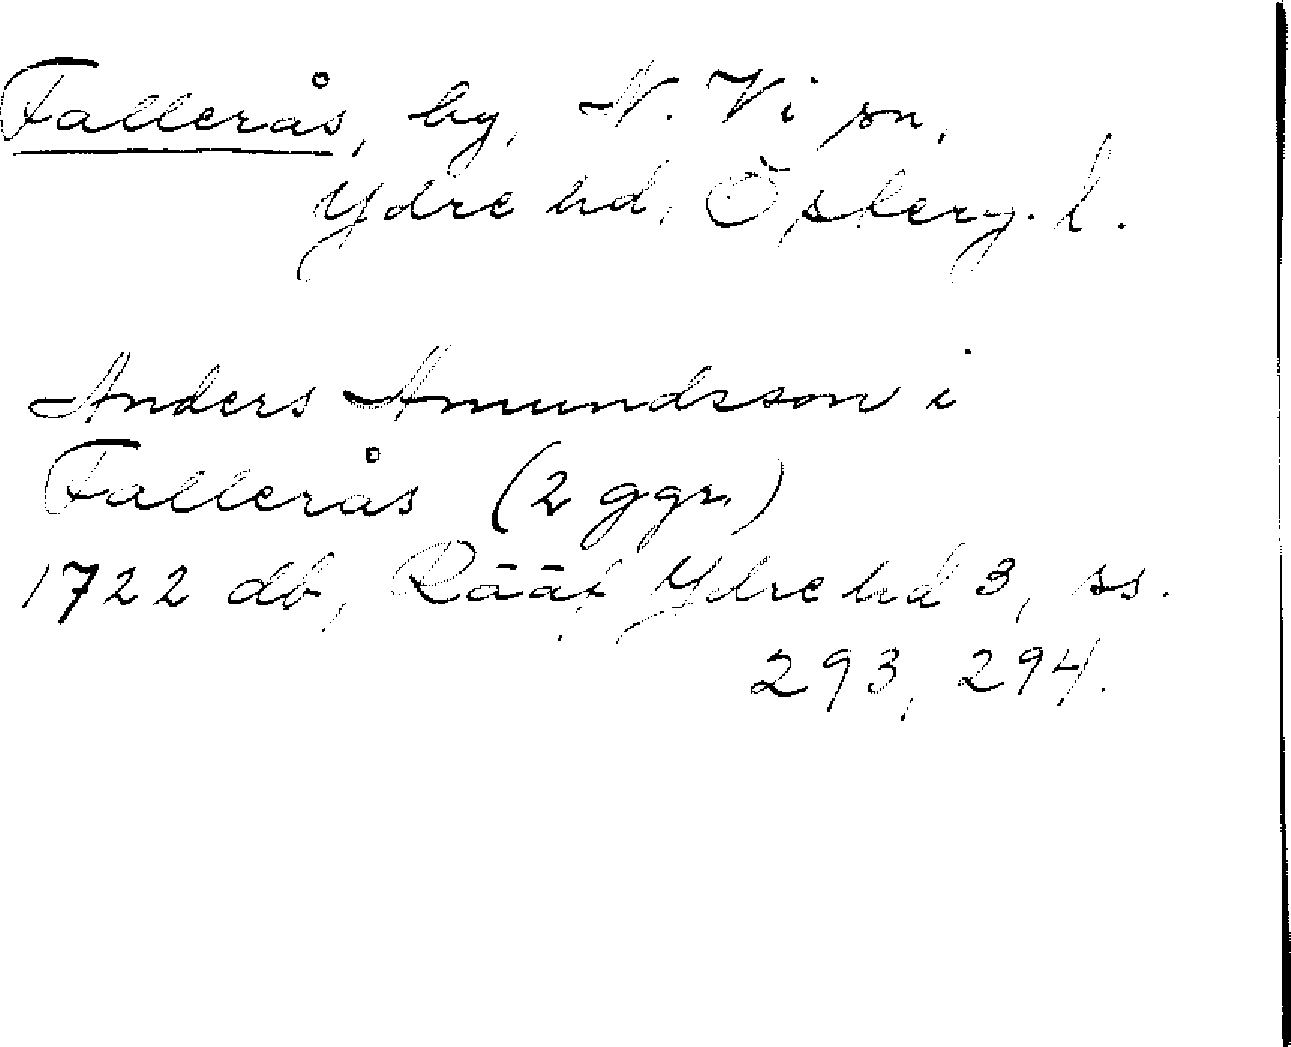 Fallerås, by, N. Vi sn,
Ydre hd, Österg. l.
Anders Amundsson i
Fallerås (2 ggr.)
1722 db, Rääf Ydre hd 3, ss.
293, 294.